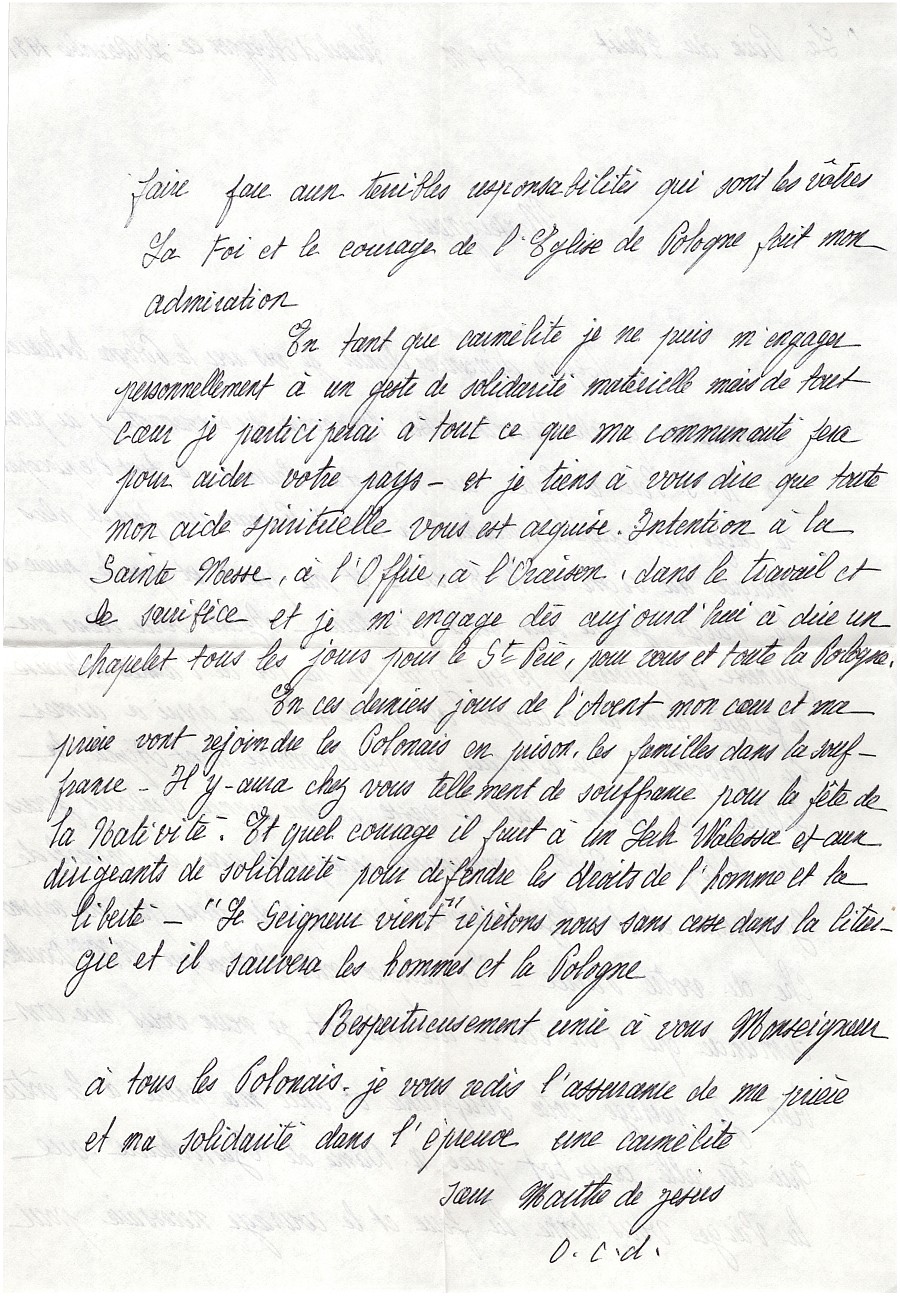 faire face aux terribles responsabilités qui sont les vôtres
La Foi et le courage de l'Eglise de Pologne fait mon
admiration
En tant que carmélite je ne puis m'engager
personnellement à un geste de solidarité matérielle mais de tout
cœur je participerai à tout ce que ma communauté fera
pour aider votre pays - et je tiens à vous dire que toute
mon aide spirituelle vous est acquise. Intention à la
Sainte Messe, à l'Office, à l'Oraison, dans le travail et
le sacrifice et je m'engage dès aujourd'hui à dire un
chapelet tous les jours pour le St Père, pour vous et toute la Pologne.
En ces derniers jours de l'Avent mon cœur et ma
prière vont rejoindre les Polonais en prison, les familles dans la souf-
france - Il y-aura chez vous tellement de souffrance pour la fête de
la Nativité. Et quel courage il faut à un Lech Walessa et aux
dirigeants de solidarité pour défendre les droits de l'homme et la
liberté - "Le Seigneur vient" répétons nous sans cesse dans la litur-
gie et il sauvera les hommes et la Pologne
Respectueusement unie à vous Monseigneur
à tous les Polonais. je vous redis l'assurance de ma prière
et ma solidarité dans l'épreuve une carmélite
Sœur Marthe de Jésus
o. c. d.